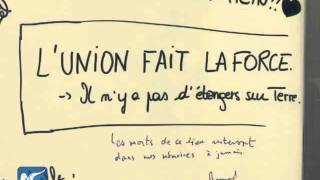 L'UNION FAIT LA FORCE.
→ Il n'y a pas d'étrangers sur Terre.
Les morts de ce lieu resteront
dans nos mémoires à jamais.